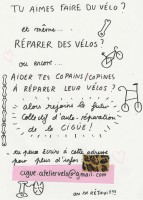 TU AIMES FAIRE DU VÉLO ?
et même...
RÉPARER DES VÉLOS ?
ou encore....
AIDER TES COPAINS/COPINES
À RÉPARER LEUR VÉLOS ?
alors rejoins le futur
Collectif d'auto-réparation
de la CIGÜE !
tu peux écrire à cette adresse
pour plus d'infos
cigue.ateliervelo@gmail.com